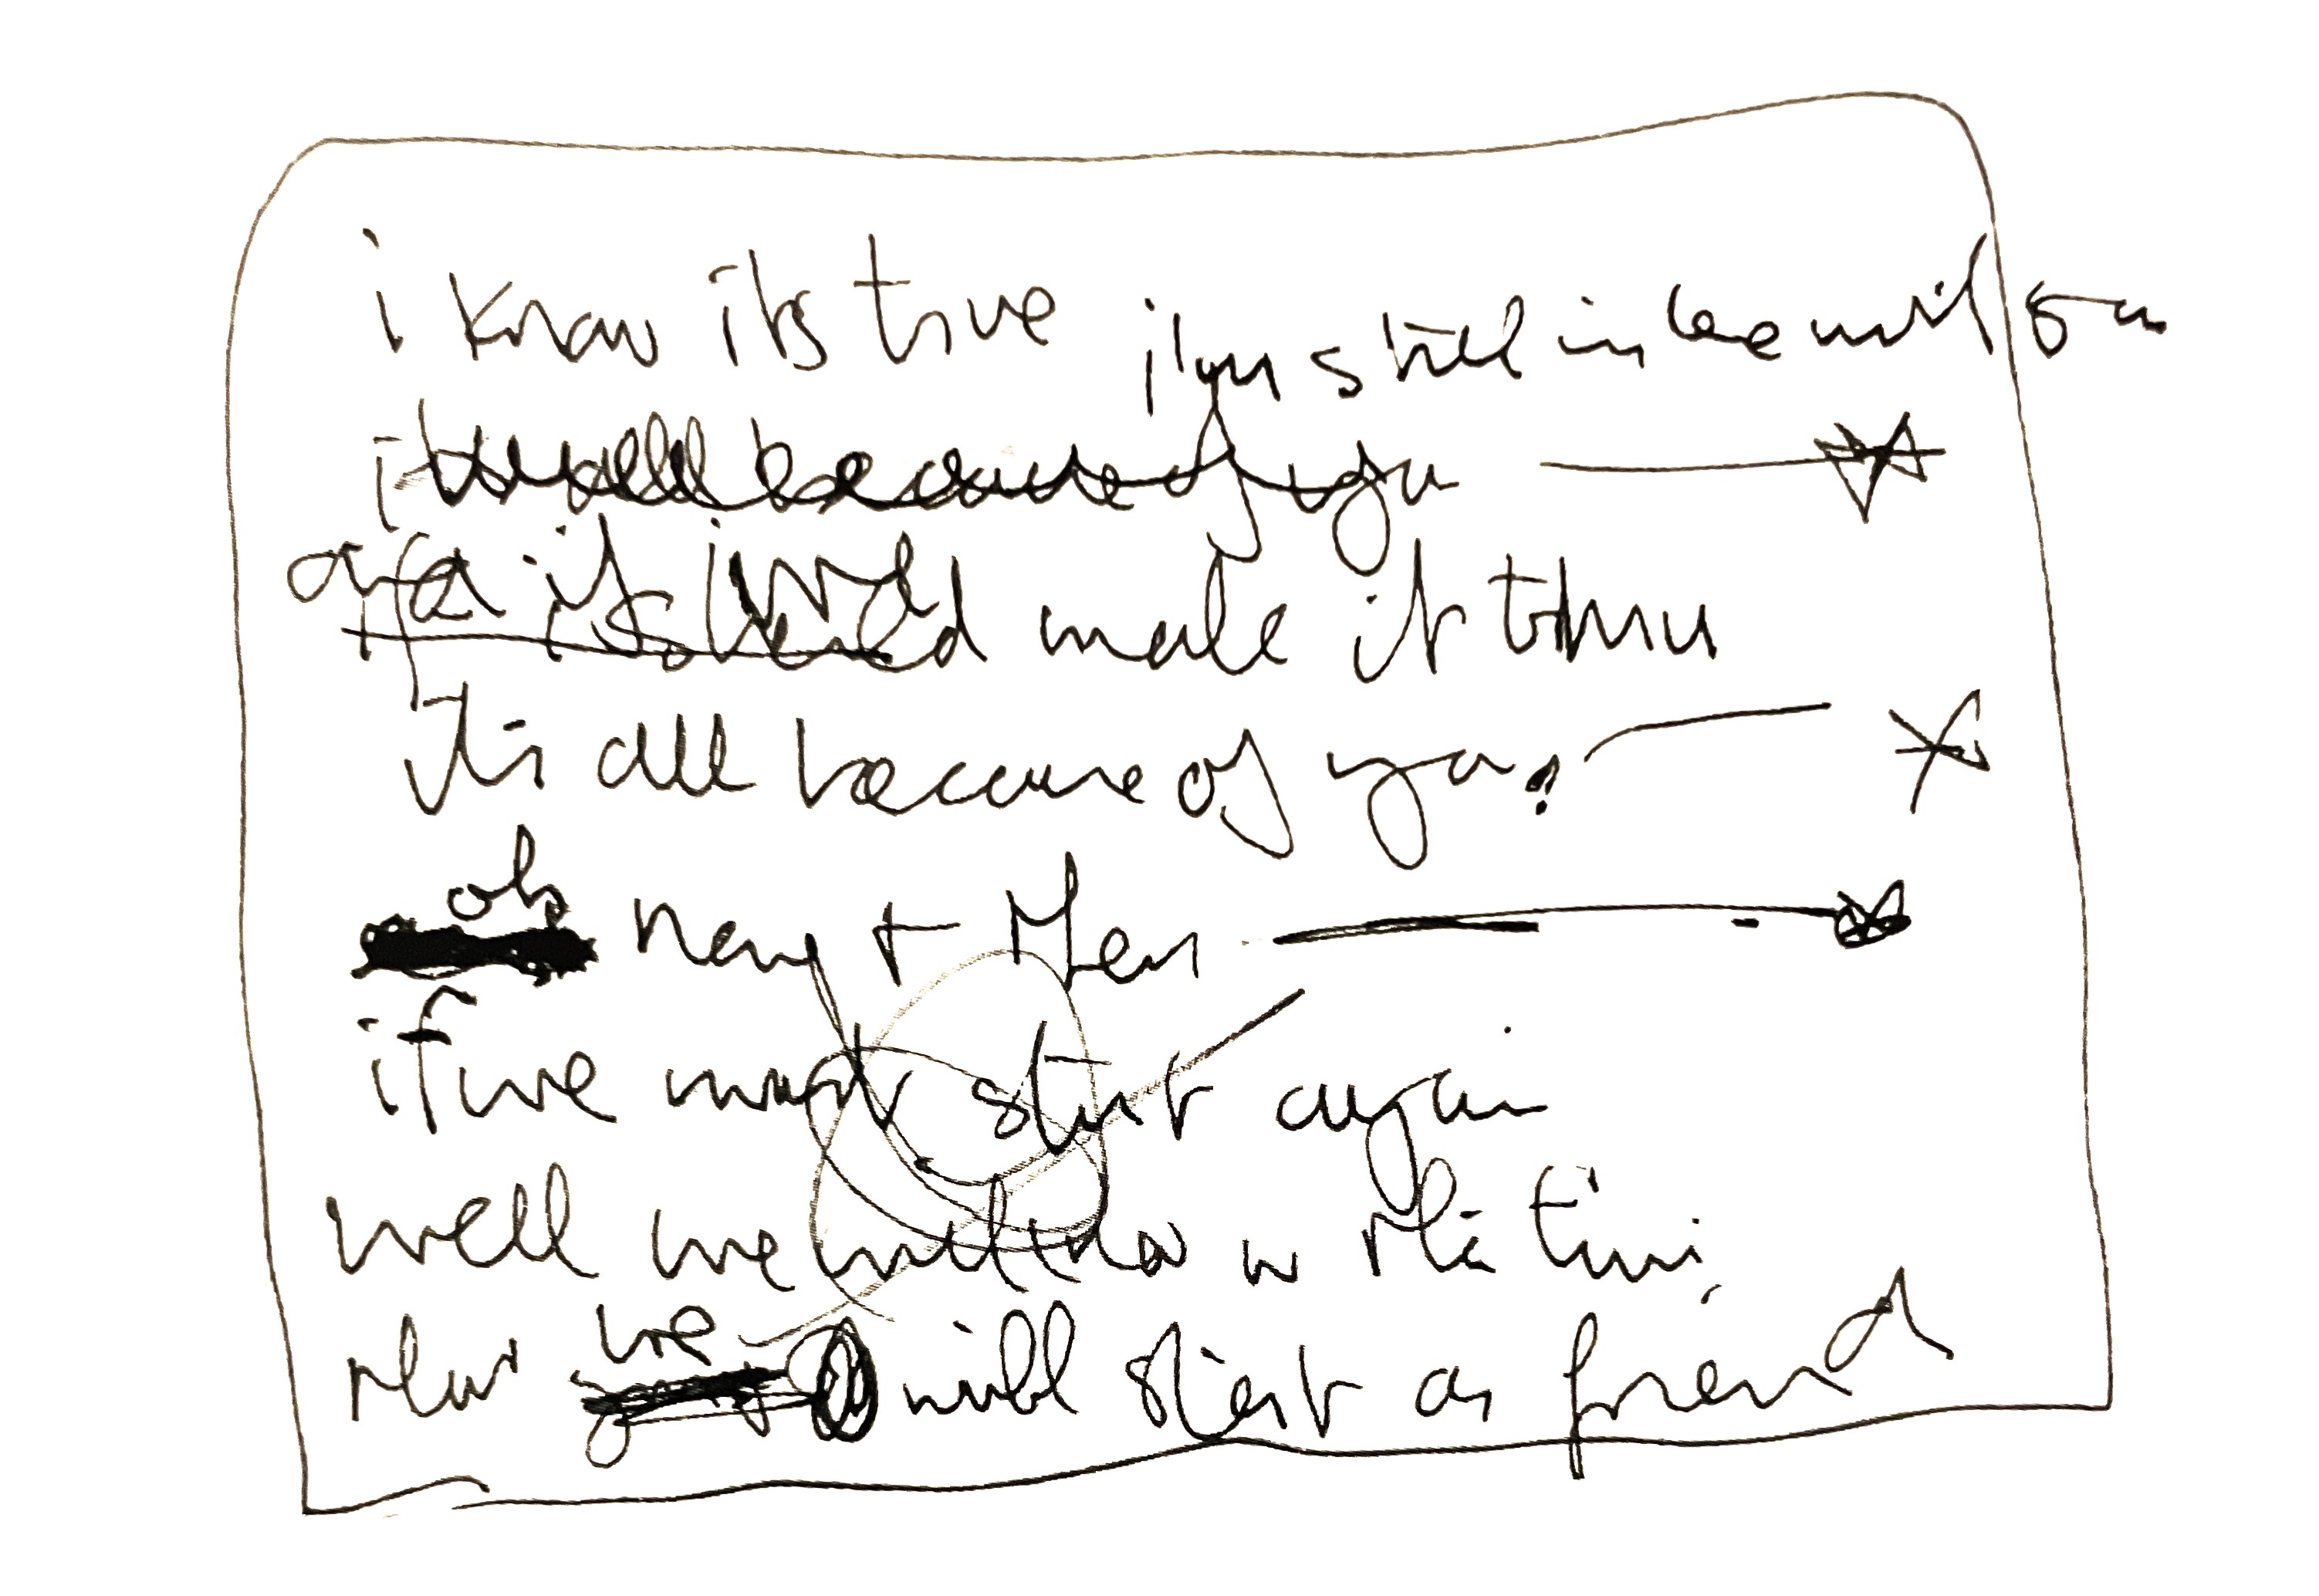 i know its true
it's all because of you
and if i should make it thru
It's all because of you
oh now & then
if we must start again
well we will know
we will start as friend